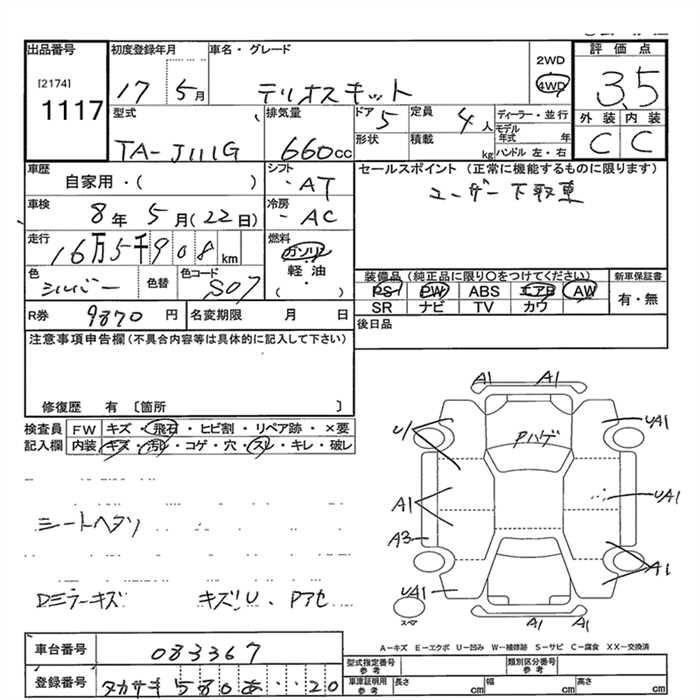 出品番号 初度登録年月 車名・グレード 2WD 評価点
[2174] 17 5月 テリオスキッド 4WD 3.5
1117 型式 排気量 ドア 5 定員 4人 ディーラー・並行 外装 内装
モデル年式 年
TA-J111G 660cc 形状 積載 kg ハンドル 左・右 C C
車歴 シフト セールスポイント (正常に機能するものに限ります)
自家用・( ) ・AT ユーザー下取車
車検 8年 5月(22日) 冷房 ・AC
走行 16万5千908km 燃料 ガソリン
軽油
( )
色 シルバー 色替 色コード S07 装備品 (純正品に限り○をつけてください) 新車保証書
PS PW ABS エアB AW 有・無
SR ナビ TV カワ
R券 9870円 名変期限 月 日 後日品
注意事項申告欄(不具合内容等は具体的に記入して下さい)
修復歴 有 〔箇所 〕
検査員 FW キズ・飛石・ヒビ割・リペア跡・×要
記入欄 内装 キズ・汚れ・コゲ・穴・スレ・キレ・破レ
シートヘタリ
Dミラーキズ キズ!U、Pアセ
A1 A1
U1 Pハゲ UA1
A1 UA1
A3
UA1 A1
スペア A1 A1
A-キズ E-エクボ U-凹み W-補修跡 S-サビ C-腐食 XX-交換済
車台番号 083367
登録番号 タカサキ 580 あ ・・20
型式指定番号 参考 類別区分番号 参考
車庫証明用 参考 長さ cm 幅 cm 高さ cm